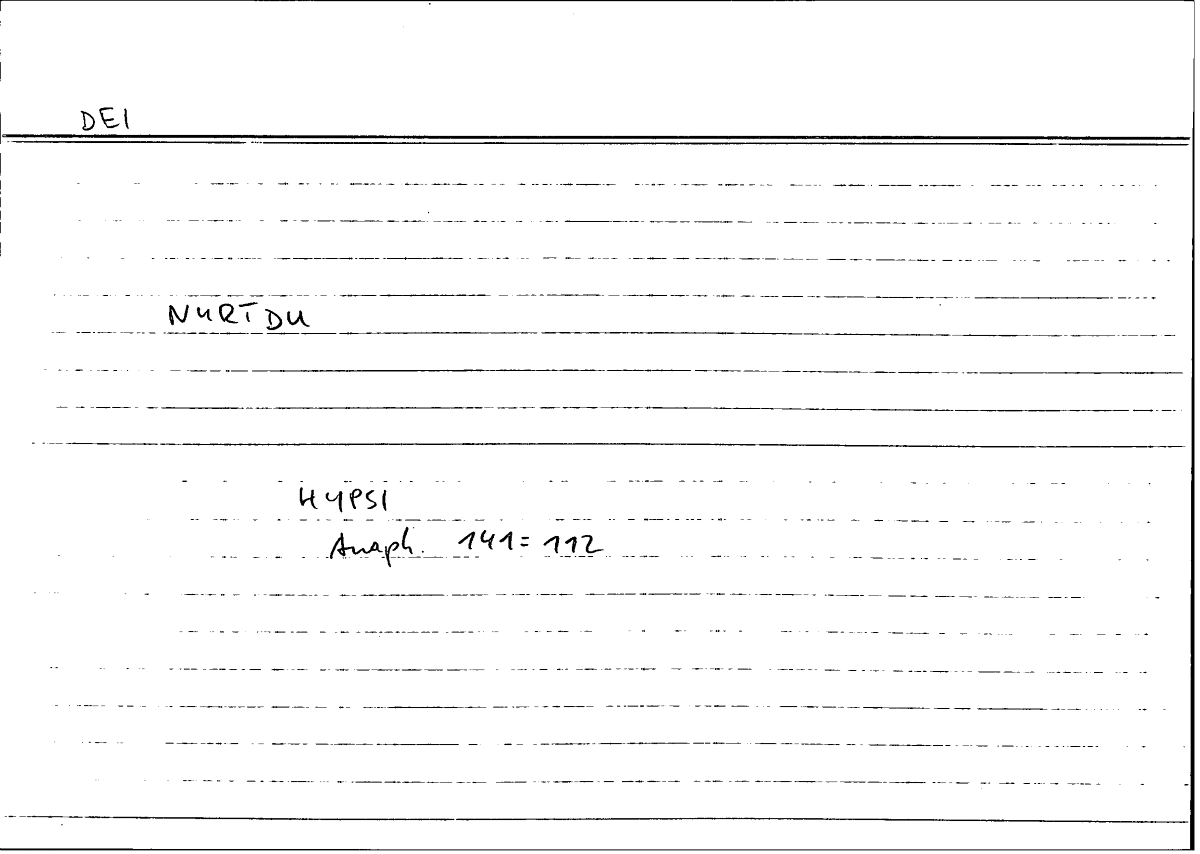 DEI
NURTDU
HYPSI
Anaph. 141 = 112